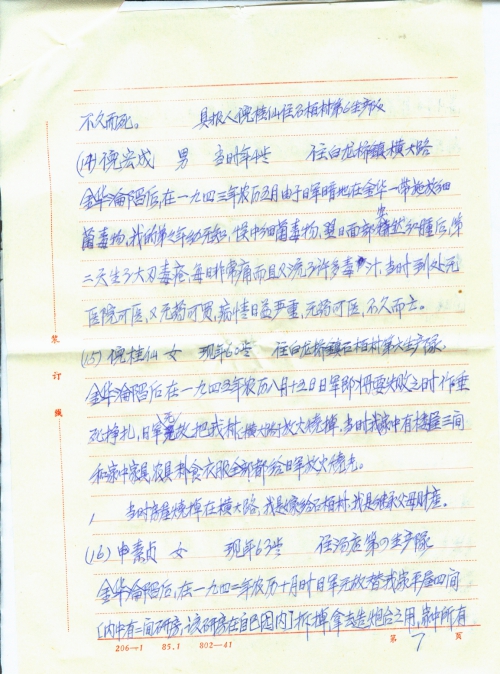 不久而死。 具报人倪桂仙住石柏村第6生产队
(14) 倪宏成 男 当时年4岁 住白龙桥镇横大路
金华沦陷后,在一九四三年农历五月由于日军暗地在金华一带施放细
菌毒物,我的弟弟年幼无知,误中细菌毒物,翌日面部突然红肿后,第
二天生了大刃毒疮,每日非常痛而且又流了许多毒汁,当时到处无
医院可医,又无药可买,病情日益严重,无药可医,不久而亡。
(15) 倪桂仙 女 现年60岁 住白龙桥镇石柏村第六生产队
金华沦陷后在一九四五年农历八月十五日日军即将要失败之时作垂
死挣扎,日军无故把我村,横大路村放火烧掉,当时我家中有楼屋三间
和家中家具农具料食衣服全部都给日军放火烧光。
当时房屋烧掉在横大路,我是嫁给石柏村,我是继承父母财产。
(16) 申素贞 女 现年63岁 住汤庄第の生产队
金华沦陷后,在一九四二年农历十月时日军无故替我家平屋四间
[内中有二间研房,该研房在自己园内]拆掉,拿去造炮台之用,家中所有
装订线
206—1 85.1 802—41
第 7 页